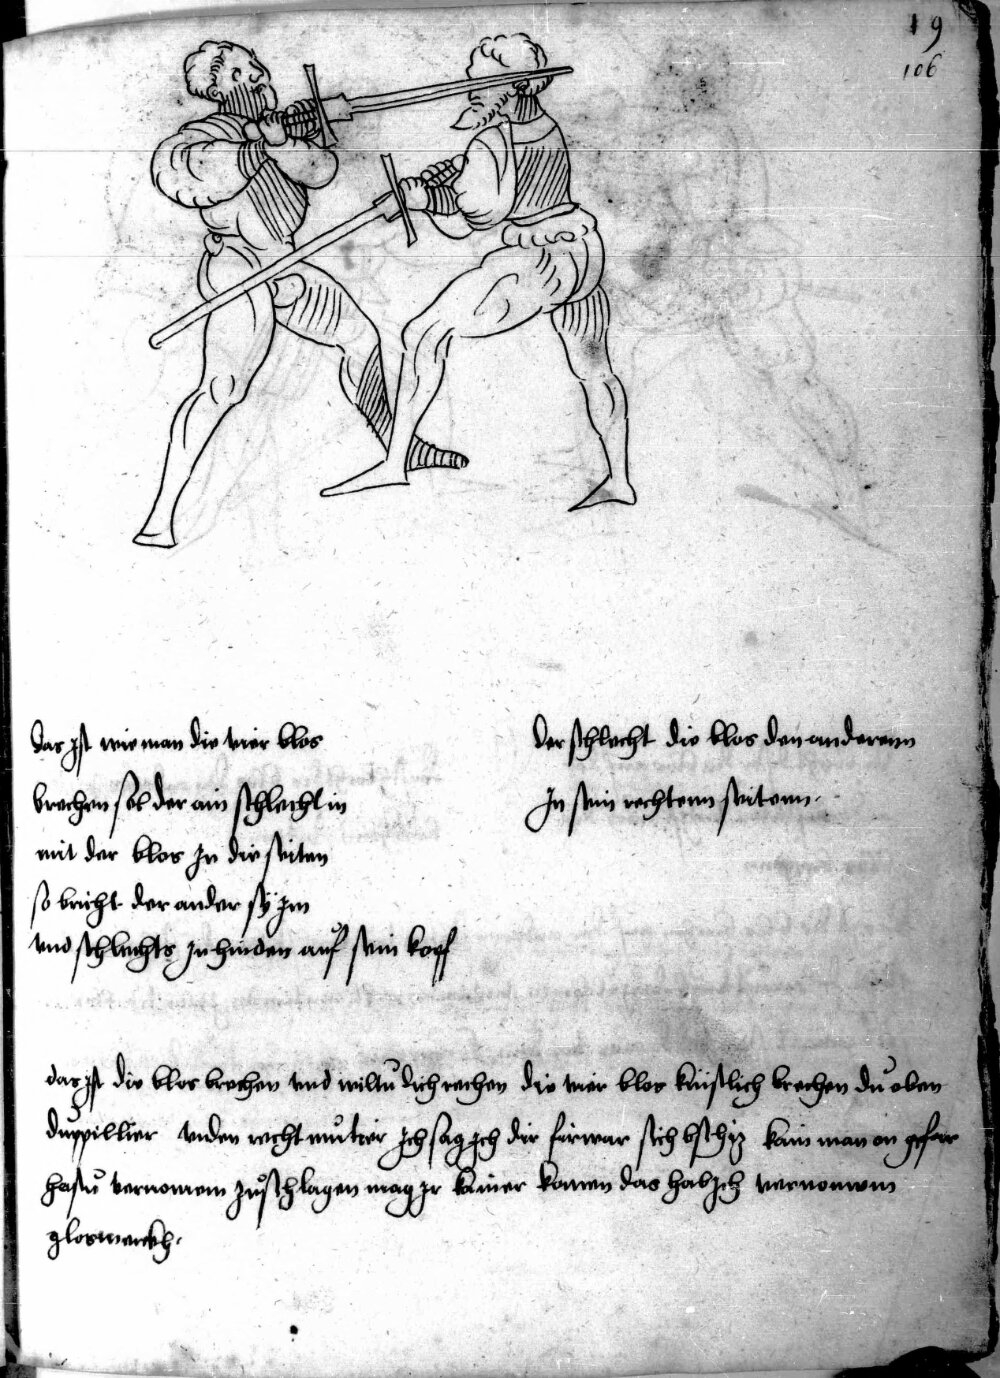 19
106
das jst wie man die vier blos
brechen sol der ain schlecht in
mit der blos in die seiten
so bricht der ander sy jm
vnd schlechts jn hinden auf sein kopf
der schlecht die blos den anderenn
jn sein rechtenn seitenn.
das jst die blos brechen vnd wiltu dich rechen die vier blos künstlich brechen du oben
duppillier vnden recht mutier ich sag ich dir fürwar sich kain man on gefar
hastu vernomen zuschlagen mag jr kainer komen das hab ich vernomen
glosmerckh.